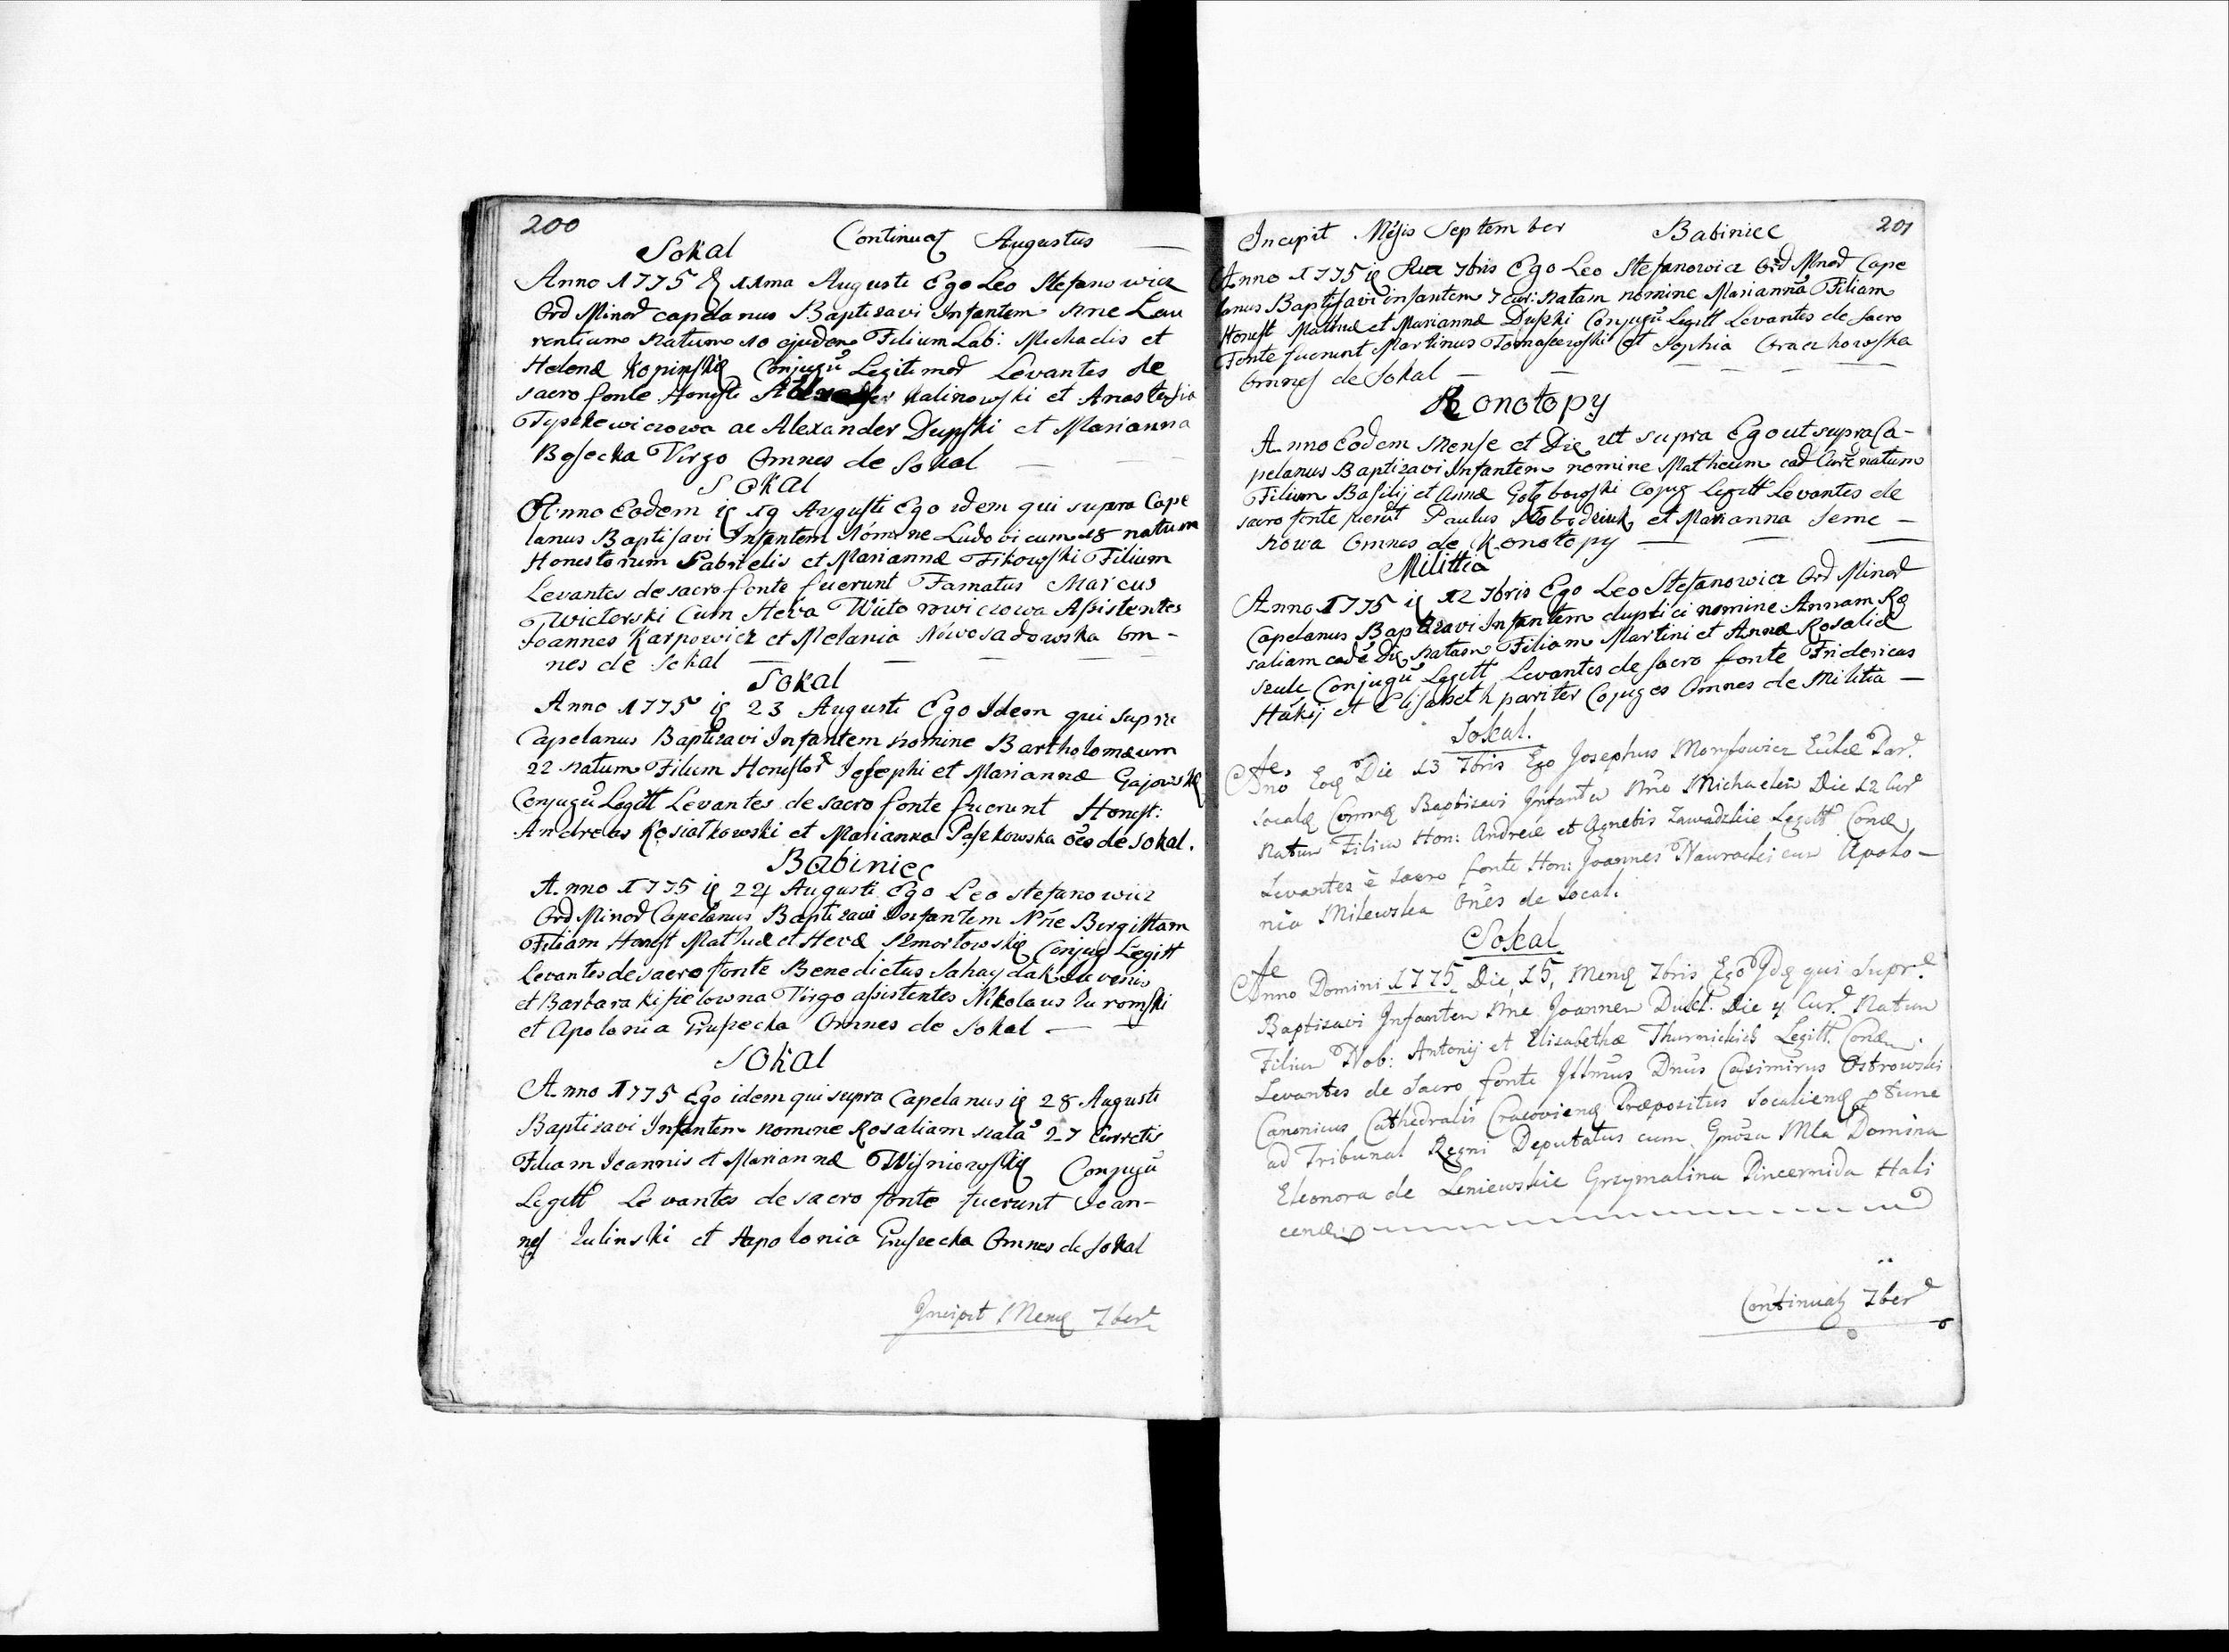 200
Continuat Augustus
Sokal
Anno 1775 11ma Augusti Ego Leo Stefanowicz
Ord Minor capelanus Baptizavi Infantem Nne Lau
rentium Natum 10 ejudem Filium Lab: Michaelis et
Helenæ Kopinski Conjugũ Legitimor Levantes de
sacro fonte Honesti Kalinowski et Anastasia
Tyszkewiczowa ac Alexander Dupski et Marianna
Bosecka Virgo Omnes de Sokal
Sokal
Anno Eodem 19 Augusti Ego idem qui supra Cape
lanus Baptisavi Infantem Nomine Ludovicum 18 natum
Honestorum Gabrielis et Mariannæ Fikowski Filium
Levantes de sacro fonte fuerunt Famatus Marcus
Wictorski Cum Heva Wiitorowiczowa Assistentes
Joannes Karpowicz et Melania Nowosadowska Om-
nes de Sokal
Sokal
Anno 1775 23 Augusti Ego Idem qui supra
Capelanus Baptizavi Infantem nomine Bartholomæum
22 Natum Filium Honestor Josephi et Mariannæ
Conjugũ Legitt Levantes de sacro fonte fuerunt Honest:
Andreas Kosiatkowski et Marianna Paszkowska oẽs de Sokal.
Babiniec
Anno 1775 24 Augusti Ego Leo Stefanowicz
Ord Minor Capelanus Baptizavi Infantem Nñe Birgittam
Filiam Honest Mathiæ et Hevæ Conjug Legitt
Levantes de sacro fonte Benedictus Sahaydak Juvenis
et Barbara Kisielowna Virgo assistentes Nikolaus Juromski
et Apolonia Gruszecka Omnes de Sokal
Sokal
Anno 1775 Ego idem qui supra Capelanus 28 Augusti
Baptizavi Infantem nomine Rosaliam natã 27 Curretis
Filiam Joannis et Mariannæ Conjugũ
Legitt Levantes de sacro fonte fuerunt Joan-
nes Zulinski et Apolonia Gruszecka Omnes de Sokal
Incipit 7ber
Incipit Mẽsis September Babiniec 201
Anno 1775 7bris Ego Leo Stefanowicz Ord Minor Cape
lanus Baptisavi infantem 7 cur: natam nomine Mariannã Filiam
Honest Mathiæ et Mariannæ Duszki Conjugũ Legitt Levantes de sacro
Fonte fuerunt Martinus Tomaszewski et Sophia
Omnes de Sokal
Konotopy
Anno Eodem Mense et Die ut supra Ego ut supra Ca-
pelanus Baptizavi Infantem nomine Matheum natum
Filium Basilij et Annæ Legitt Levantes de
sacro fonte fuerut Paulus et Marianna Seme-
nowa Omnes de Konotopy
Milittia
Anno 1775 12 7bris Ego Leo Stefanowicz Ord Minor
Capelanus Baptizavi Infantem duplici nomine Annam Ro
saliam Die Natam Filiam Martini et Annæ Rosaliæ
Szulc Conjugũ Legitt Levantes de sacro fonte Fridericus
et Elisabeth pariter Cojuges Omnes de Militia
Sokal.
Anno Die 13 7bris Ego Josephus
Baptisavi Nñe Michaelem Die 12 Cur
Natum Filium Hon: Andreæ et Agnetis Zawadzkie Legitt
Levantes è sacro fonte Hon: Joannes Nawrocki cum Apolo-
nia Milewska Oñes de Socal.
Sokal
Anno Domini 1775 Die, 15, 7bris Ego qui Supr
Baptisavi Nñe Joannem Die Cur. Natum
Filium Nob: Antonij et Elisabethæ Legitt.
Levantes de Sacro fonte Illmus Dnus Casimirus Ostrowski
Canonicus Cathedralis Præpositus
ad Tribunal Regni Deputatus cum Domina
Eleonora de Leniewskie Grzymalina Pincernida Hali
cen
Continuat 7ber